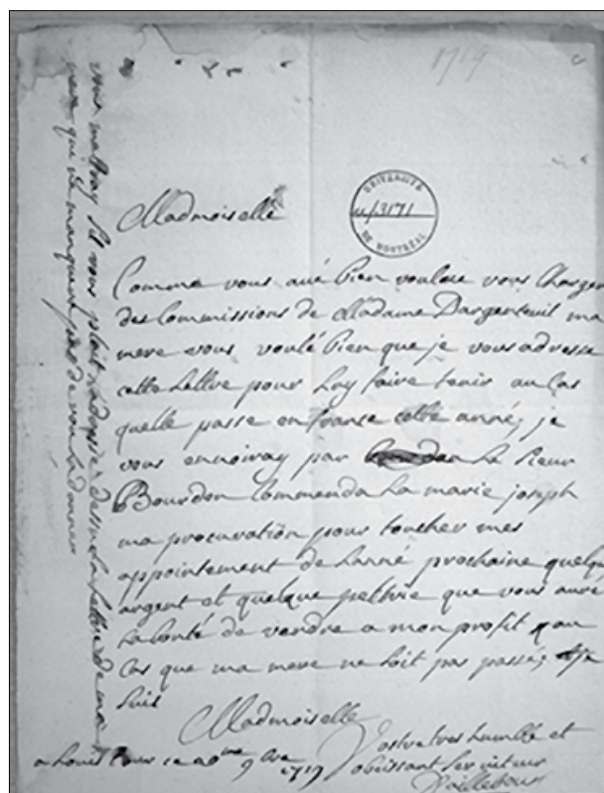 1719
UNIVERSITÉ
u/3171
DE MONTRÉAL
Madmoiselle
Comme vous avé bien voulue vous Charger
des Commissions de Madame Dargenteuil ma
mere vous voulé bien que je vous adresse
cette Lettre pour Luy faire tenir au Cas
quelle passe en france cette anné, je
vous envoiray par Le Sieur
Bourdon Commenda La marie joseph
ma procuration pour toucher mes
appointement de Lanné prochaine quelque
argent et quelque peltrie que vous auré
La bonté de vendre a mon profit au
Cas que ma mere ne soit pas passé, je
suis
Madmoiselle
Vostre tres humble et
obeissant serviteur
Daillebout
a Louis Bour ce 20me 9bre 1719
vous metteray sil vous plait Ladresse dessu La Lettre de ma
mere qui ne manquera pas de vous La donner